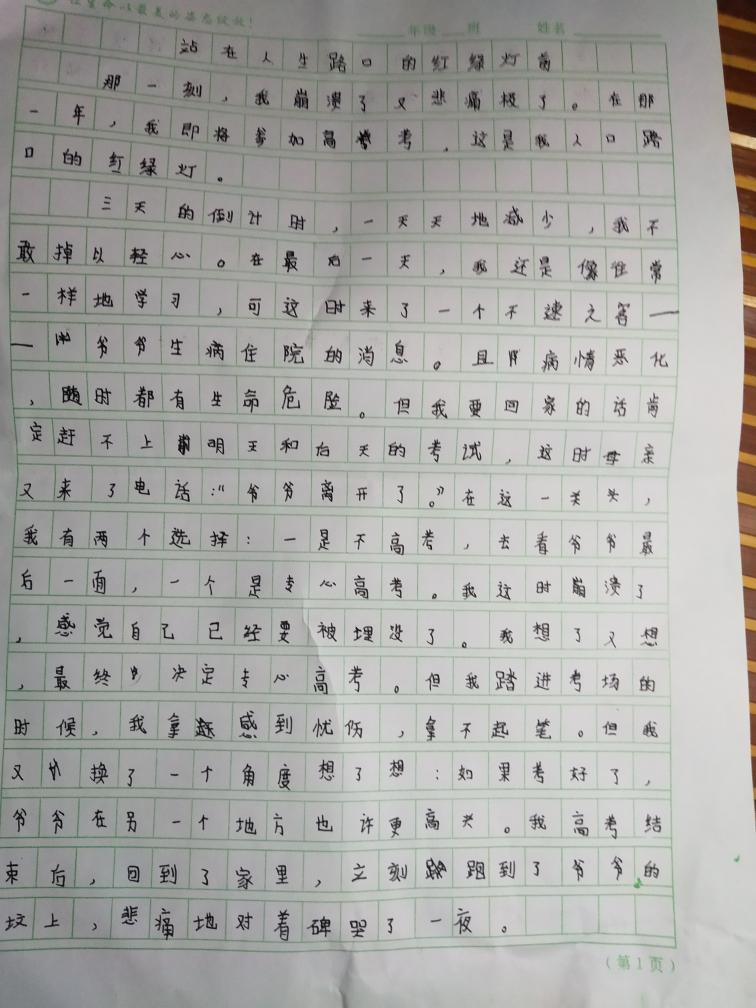 让生命以最美的姿态绽放!
年级 班 姓名
站在人生路口的红绿灯前
那一刻,我崩溃了又悲痛极了。在那
一年,我即将参加高考,这是我人口路
口的红绿灯。
三天的倒计时,一天天地减少,我不
敢掉以轻心。在最后一天,我还是像往常
一样地学习,可这时来了一个不速之客—
—爷爷生病住院的消息。且病情恶化
,随时都有生命危险。但我要回家的话肯
定赶不上明天和后天的考试,这时母亲
又来了电话:“爷爷离开了。”在这一关头,
我有两个选择:一是不高考,去看爷爷最
后一面,一个是专心高考。我这时崩溃了
,感觉自己已经要被埋没了。我想了又想
,最终决定专心高考。但我踏进考场的
时候,我拿感到忧伤,拿不起笔。但我
又换了一个角度想了想:如果考好了,
爷爷在另一个地方也许更高兴。我高考结
束后,回到了家里,立刻跑到了爷爷的
坟上,悲痛地对着碑哭了一夜。
(第1页)